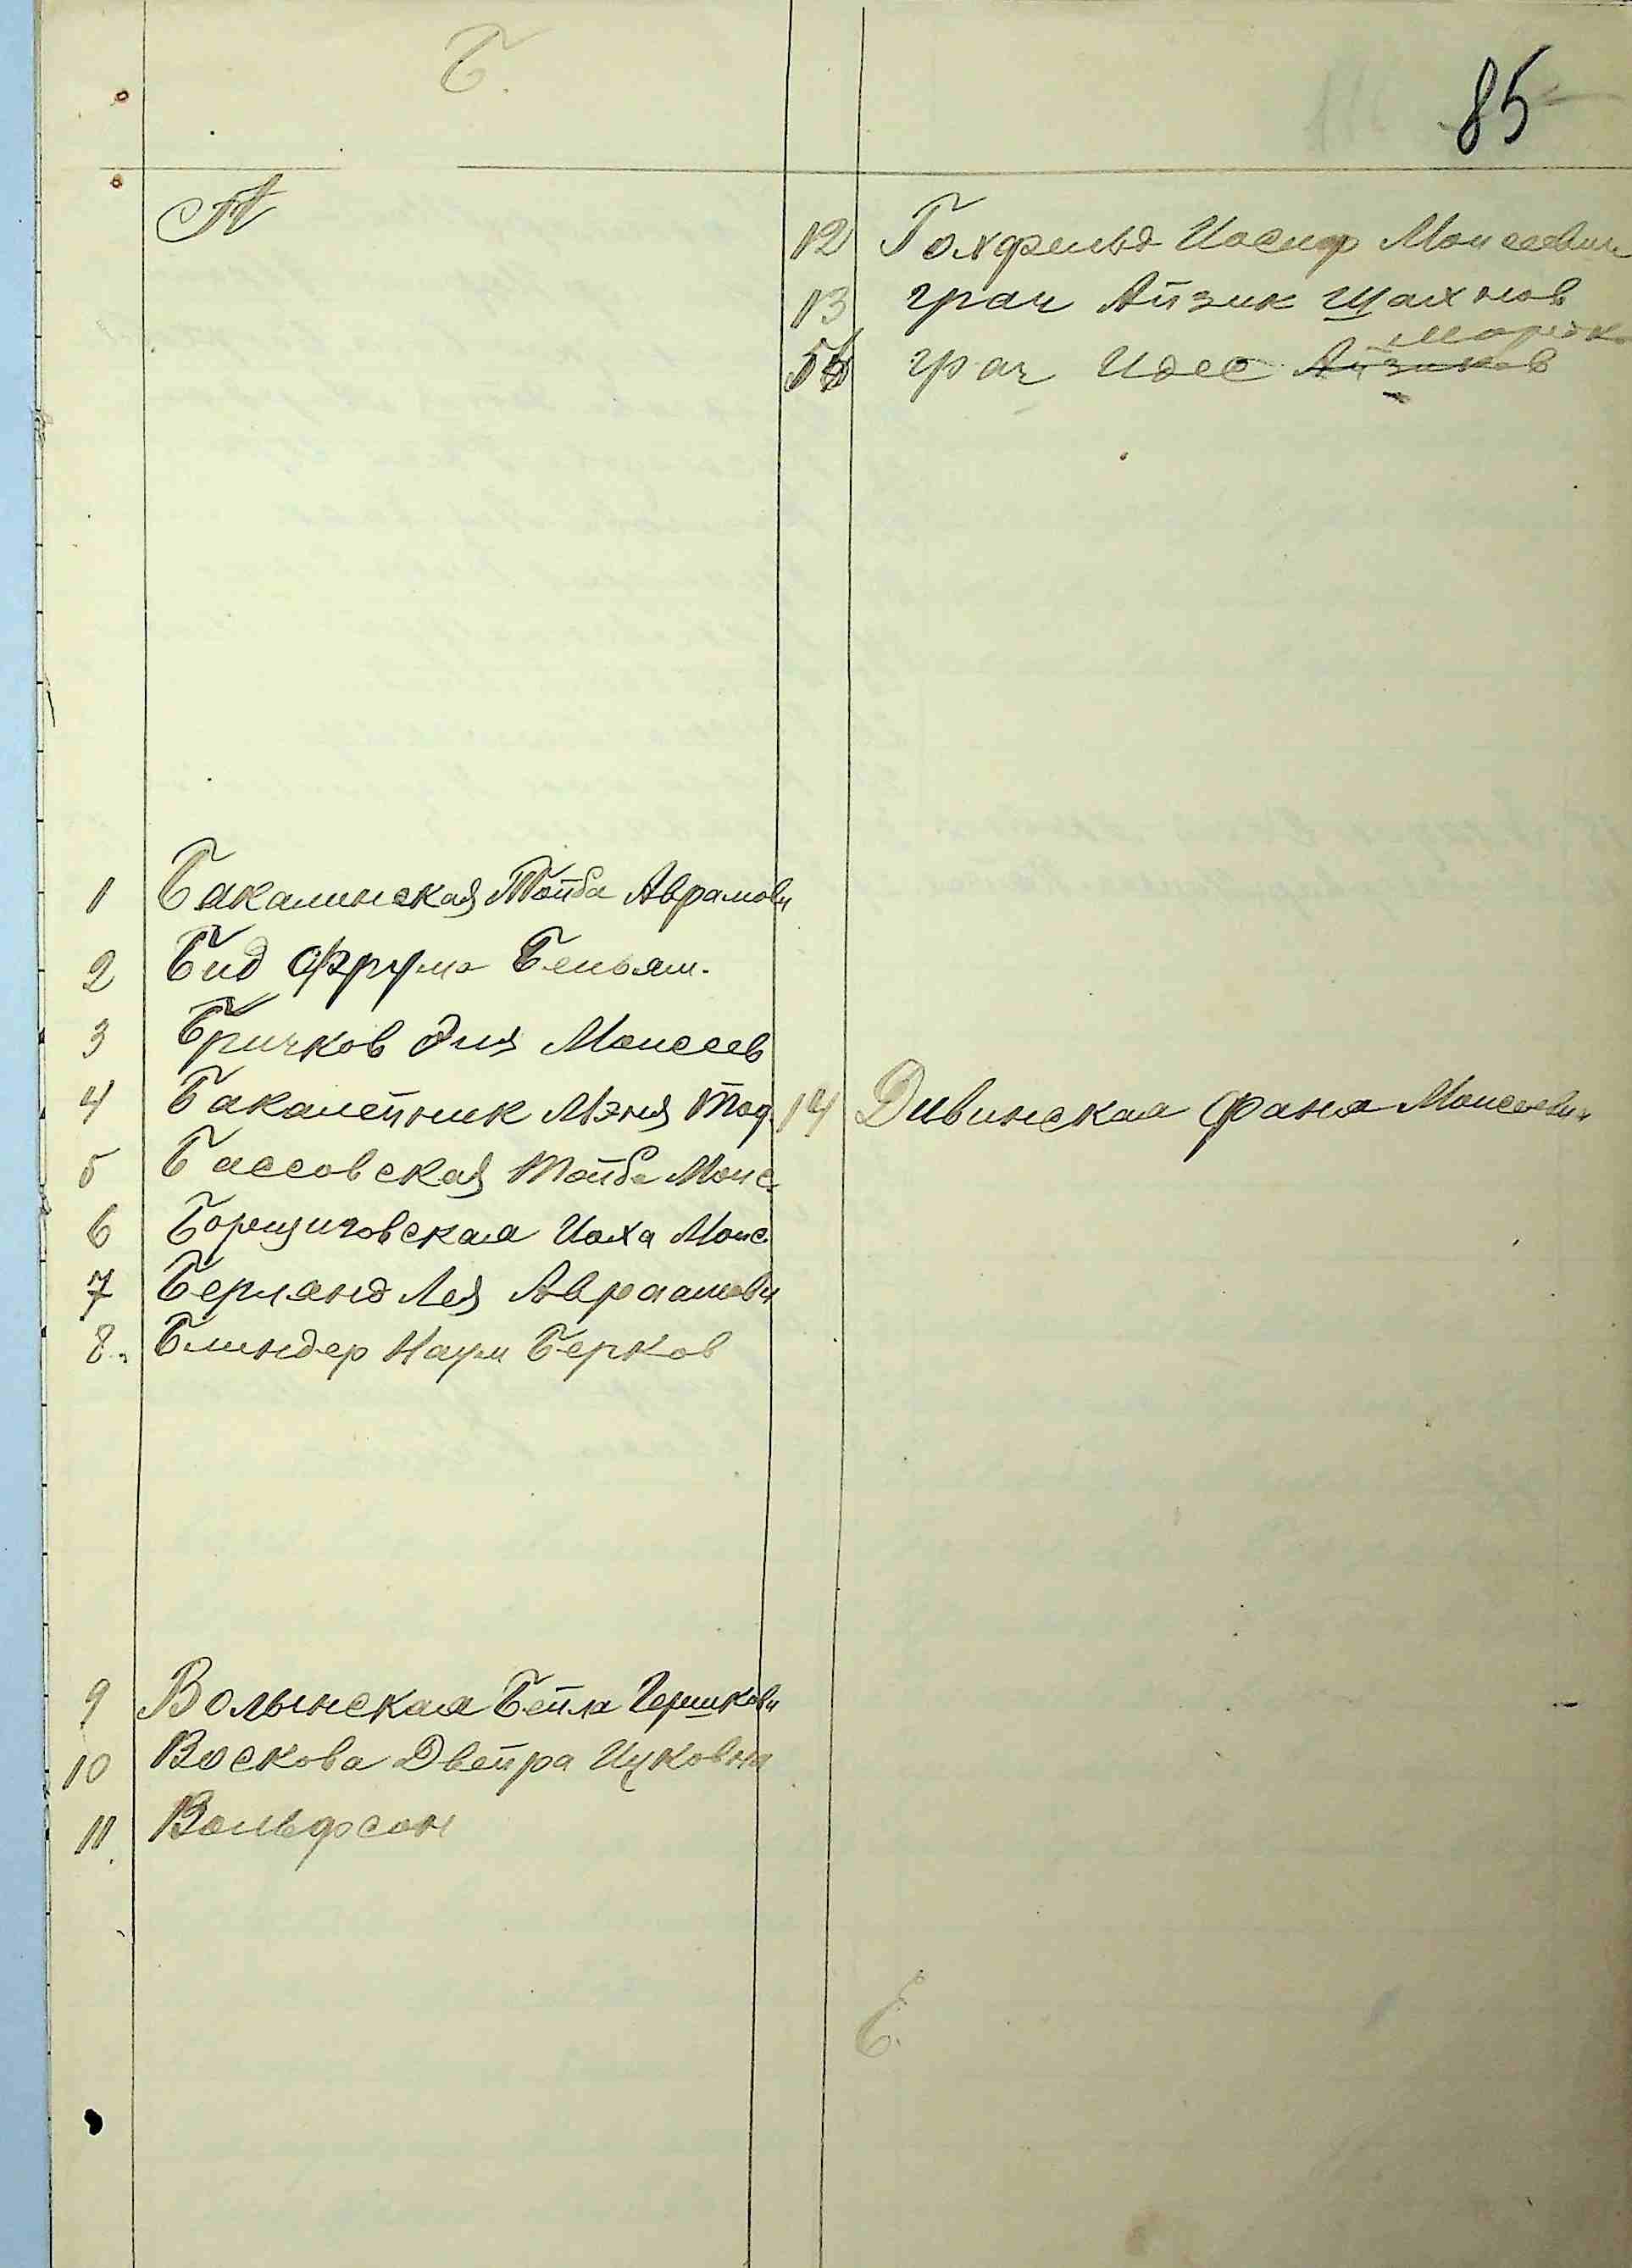 Б.
85
А
1 Бакалинская Тойба Аврамовн
2 Бид Фрума Беньям.
3 Бричков Эля Моисеев
4 Бакалейник Мэня Тод.
5 Бассовская Тойба Моис
6 Борщиговская Иоха Моис
7 Берланд Лея Авраамовн
8. Блиндер Наум Берков
9 Волынская Бейла Гершковн
10 Воскова Двейра Ицковна
11. Вольфсон
12 Голфельд Иосиф Моисеевич
13 Грач Айзик Шахнов
Мордк
Грач Идес Айзиков
14 Дивинская Фаня Моисеевн
Е.